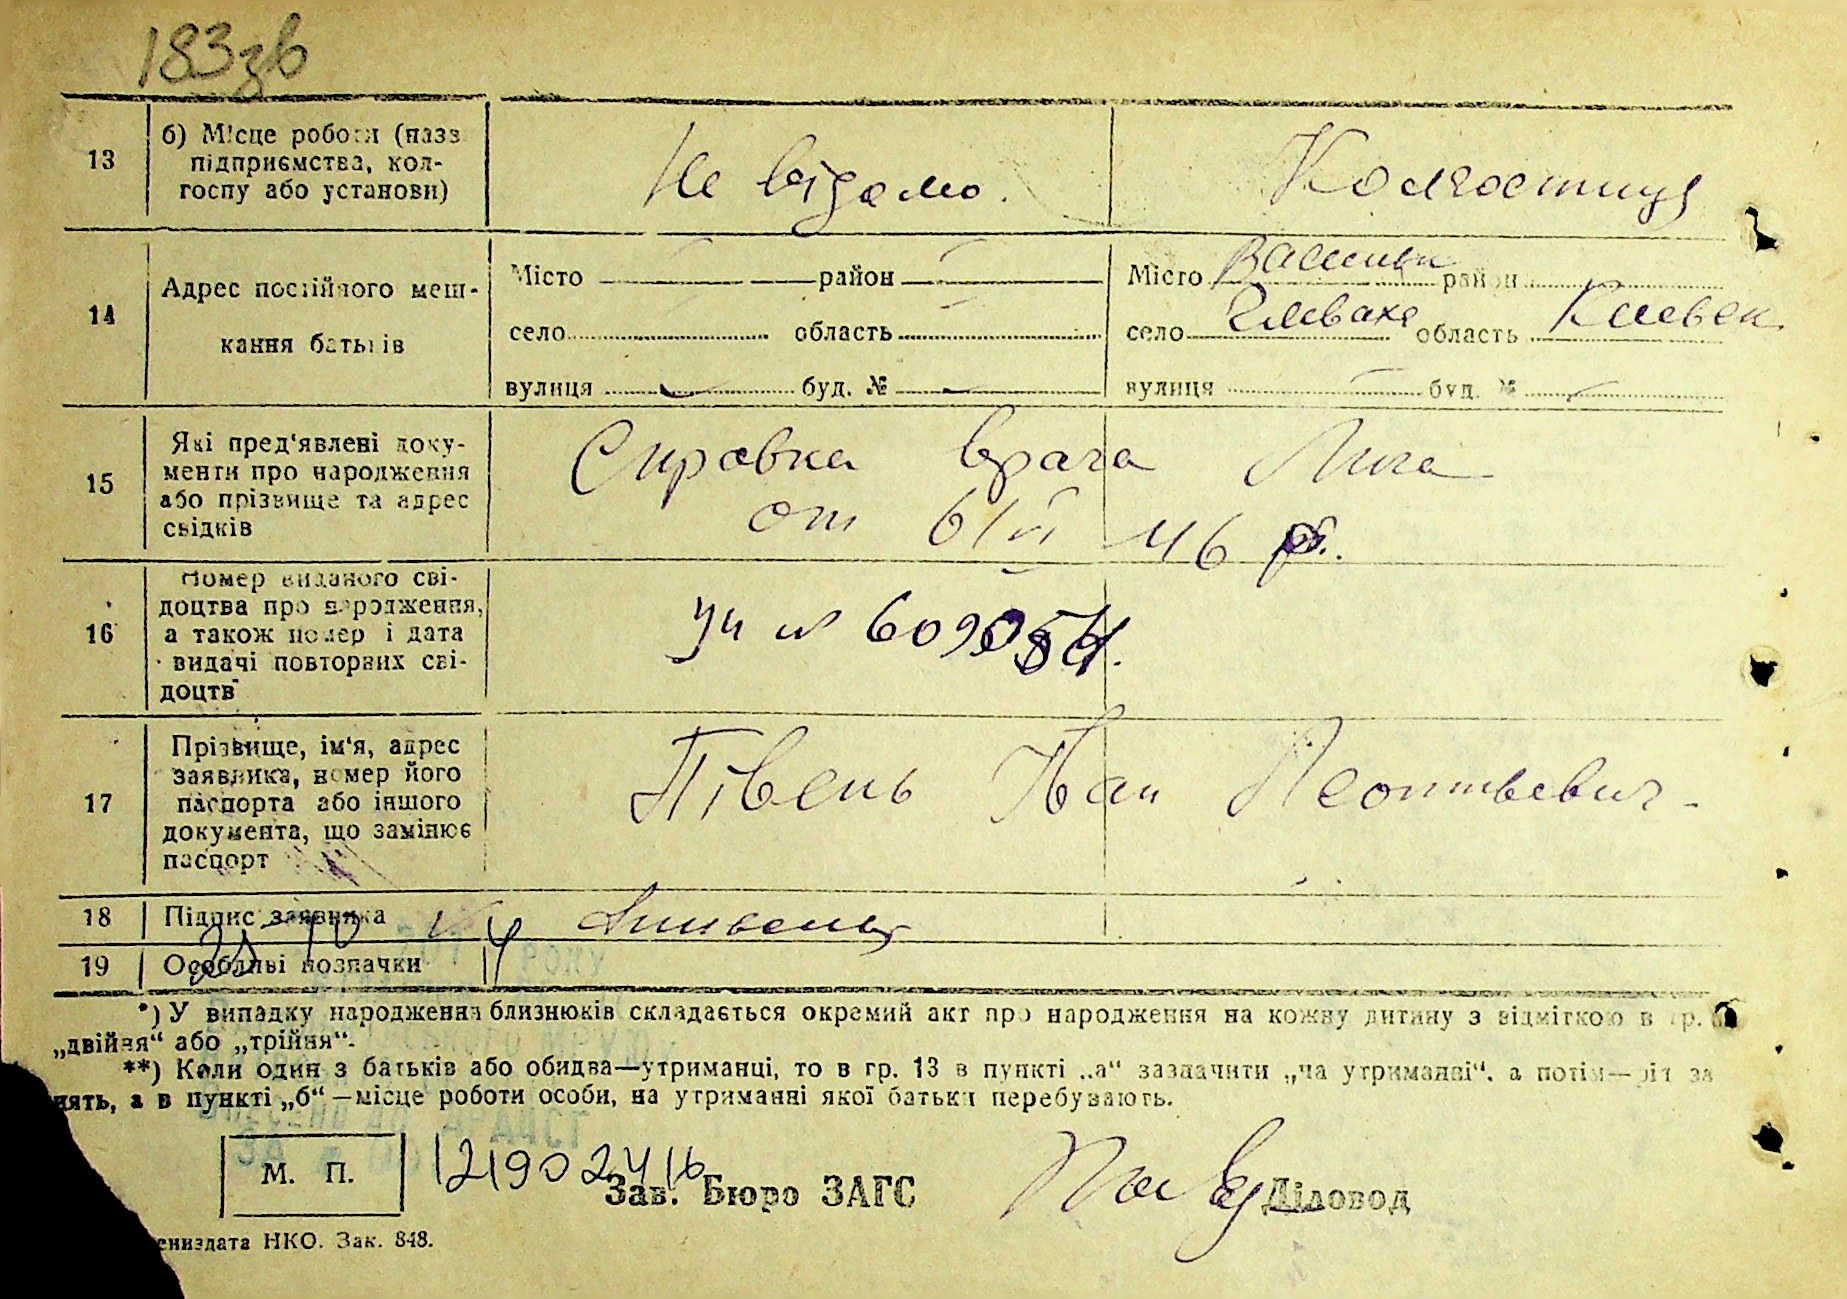 183зв
13
б) Місце роботи (назв
підприємства, кол-
госпу або установи)
Не відомо.
Колгоспниця
14
Адрес постійного меш-
кання батьків
Місто район
село область
вулиця буд. №
Місто Васильк район
село Глеваха область Киевск
вулиця буд. №
15
Які пред'явлені доку-
менти про народження
або прізвище та адрес
свідків
Справка врача
от 6/VI 46 р.
16
Номер виданого сві-
доцтва про народження,
а також номер і дата
видачі повторних сві-
доцтв
№
17
Прізвище, ім'я, адрес
заявника, номер його
паспорта або іншого
документа, що замінює
паспорт
Півень Иван Леонтьевич
18
Підпис заявника
19
Особливі позначки
РОКУ
*) У випадку народження близнюків складається окремий акт про народження на кожну дитину з відміткою в гр.
„двійня“ або „трійня“.
**) Коли один з батьків або обидва—утриманці, то в гр. 13 в пункті „а“ зазначити „на утриманні“, а потім— за
нять, а в пункті „б“—місце роботи особи, на утриманні якої батьки перебувають.
М. П.
Зав. Бюро ЗАГС
Діловод
ениздата НКО. Зак. 848.